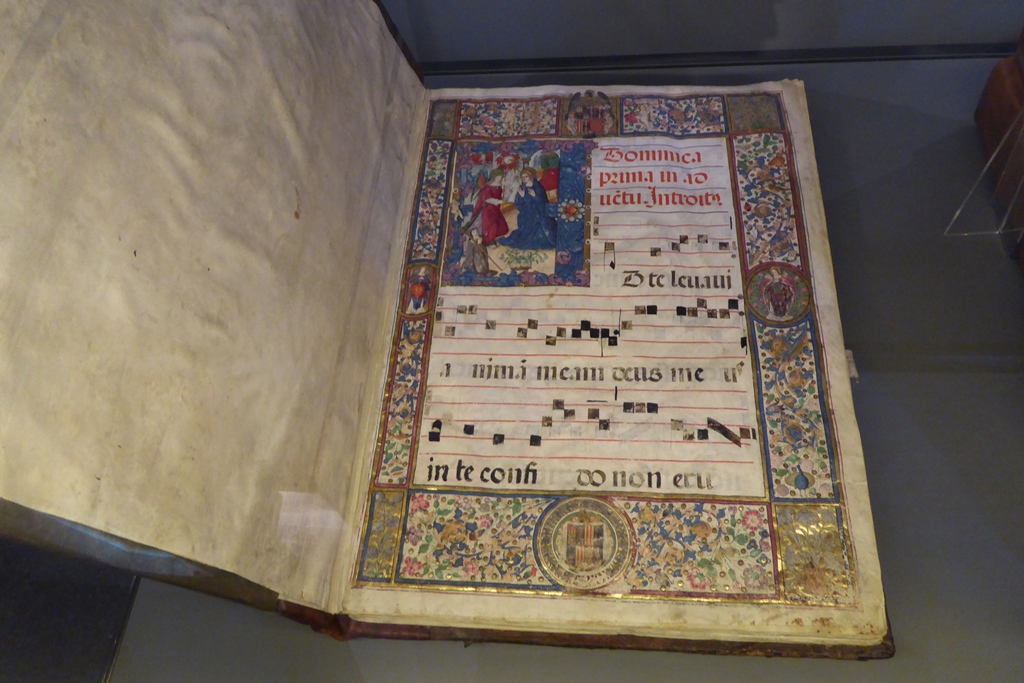 Dominica
prima in ad
uẽtu. Introitꝰ.
D te leuaui
a nimai meam deus me u
in te confi do non eru